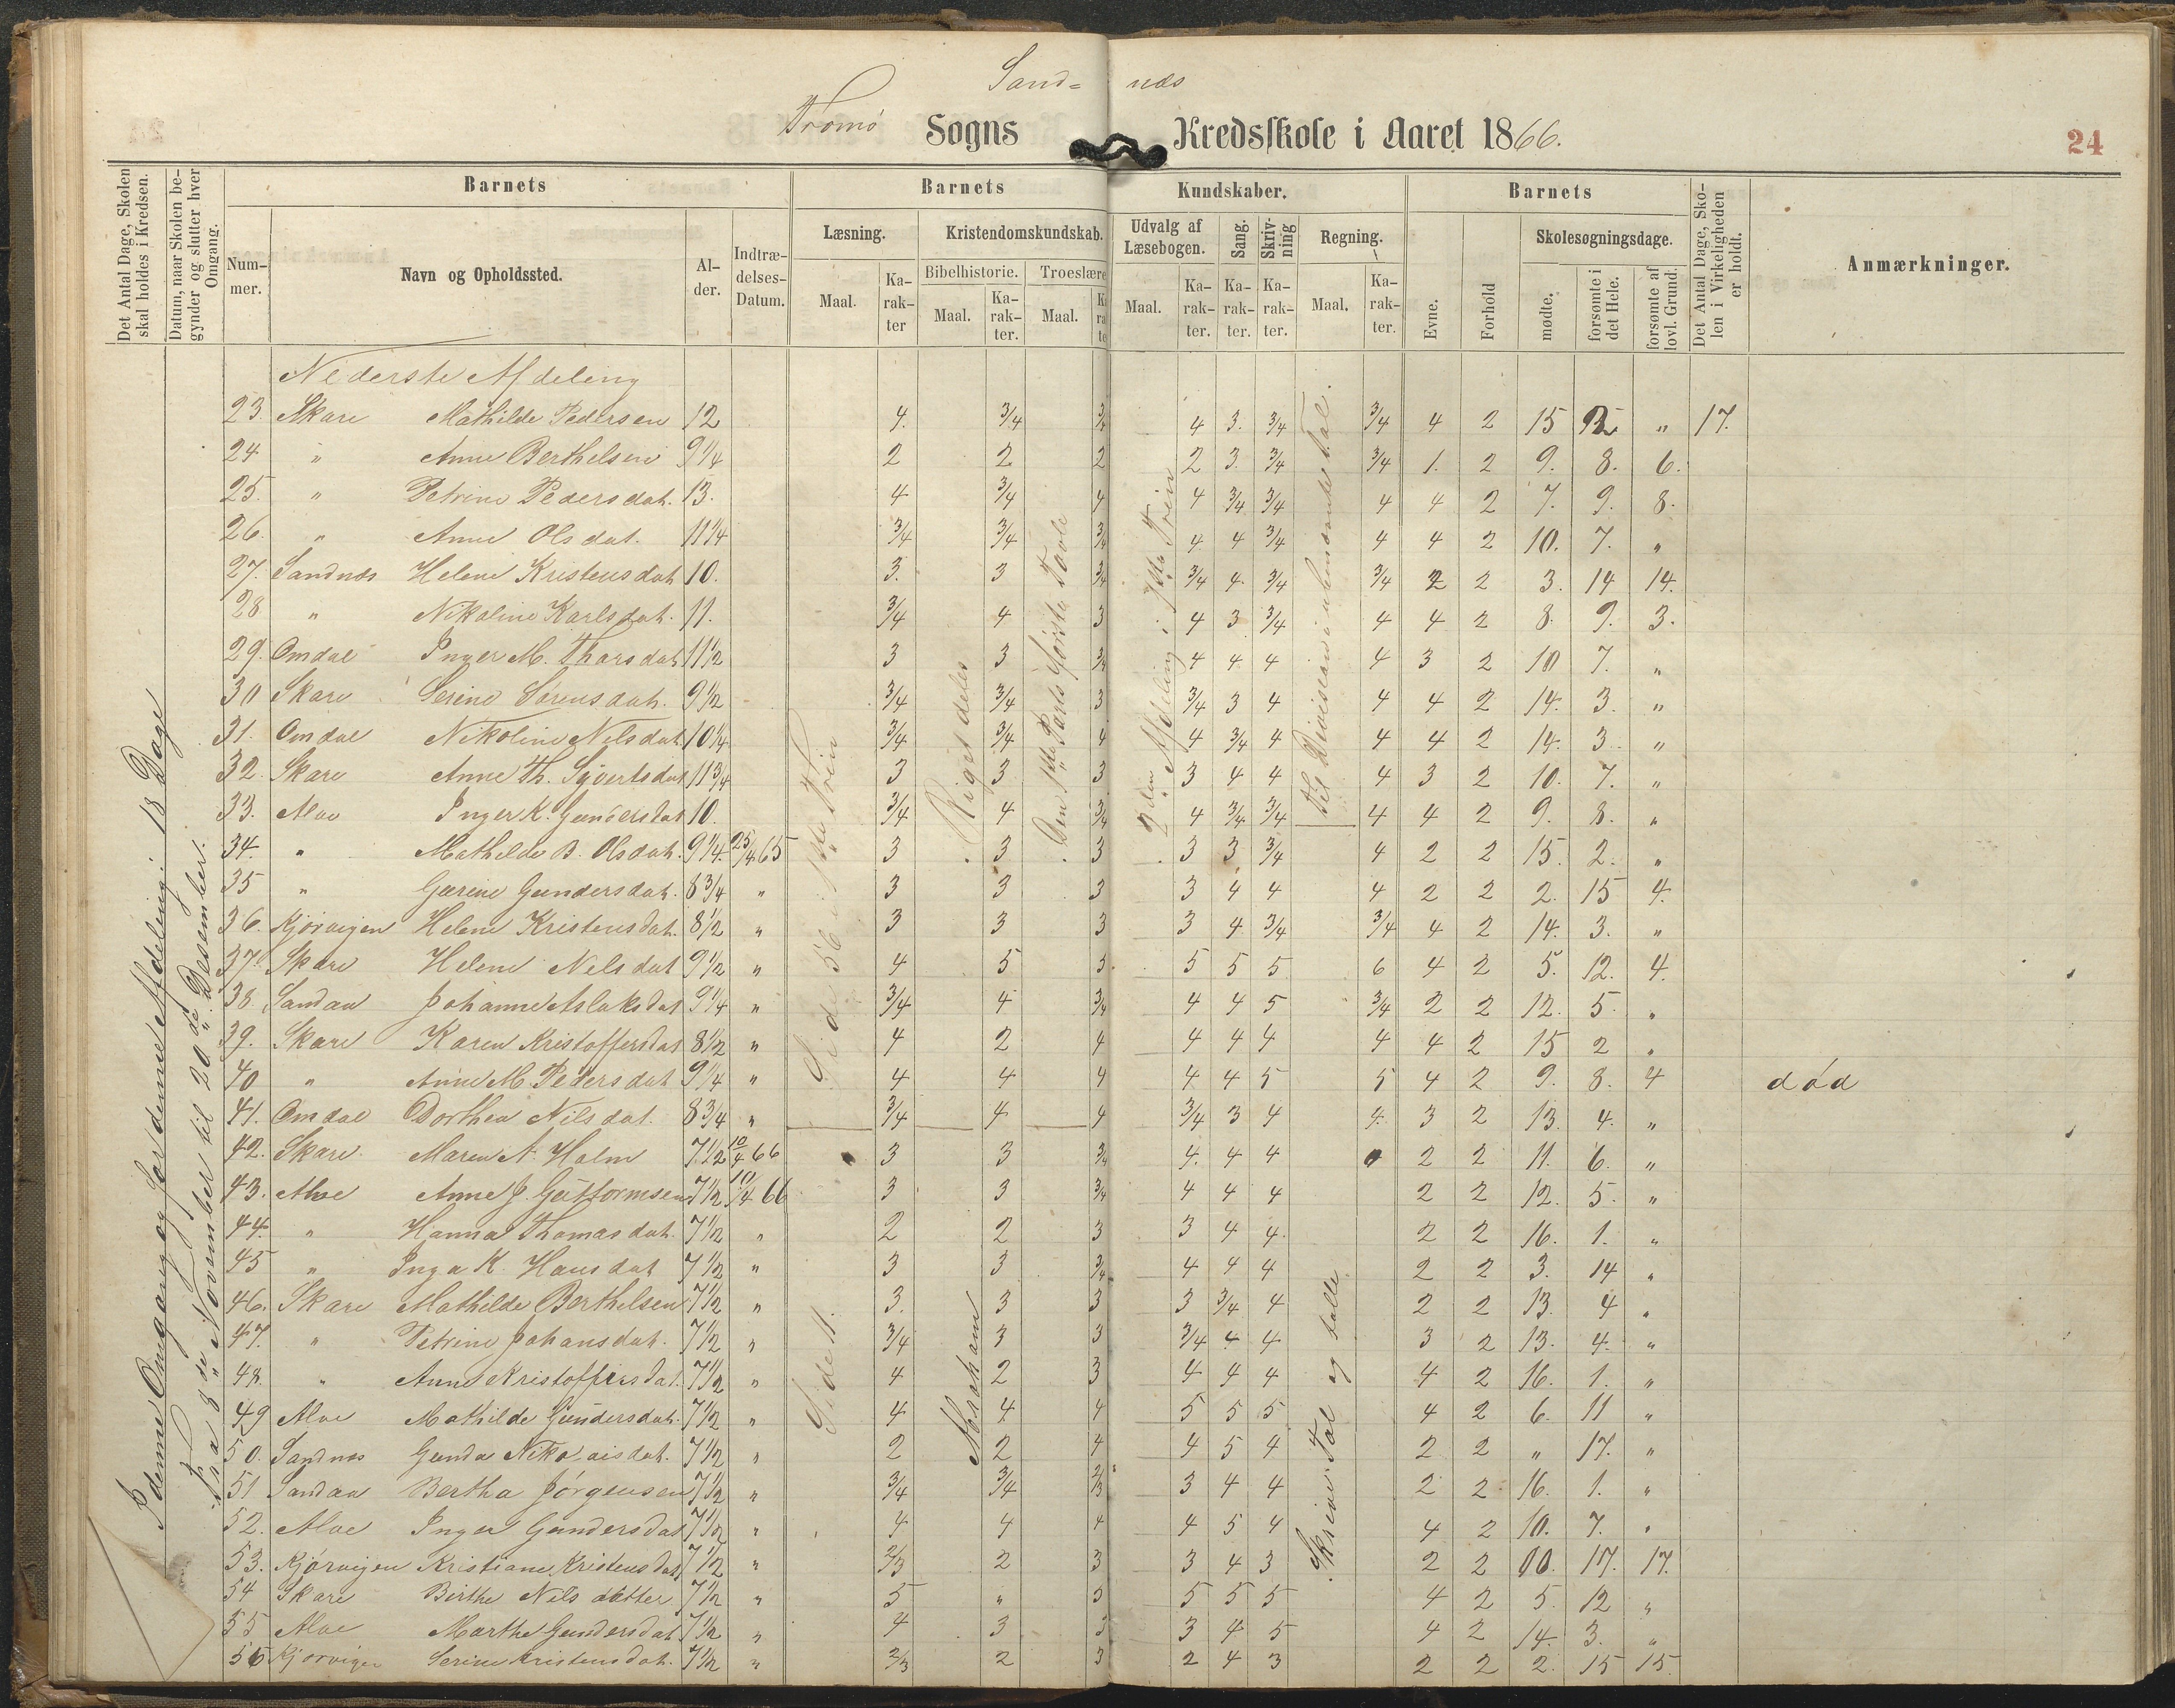 Sand= næs
Tromø Sogns Kredsskole i Aaret 1866.
24
Det Antal Dage, Skolen skal holdes i Kredsen.
Datum, naar Skolen begynder og slutter hver Omgang.
Barnets
Barnets
Kundskaber.
Barnets
Det Antal Dage, Skolen i Virkeligheden er holdt.
Anmærkninger.
Nummer.
Navn og Opholdssted.
Alder.
Indtrædelses-Datum.
Læsning.
Kristendomskundskab.
Udvalg af Læsebogen.
Sang.
Skrivning
Regning.
Evne.
Forhold
Skolesøgningsdage.
Bibelhistorie.
Troeslære
Maal.
Karakter
Maal.
Karakter.
Maal.
Maal.
Karakter.
Karakter.
Karakter.
Maal.
Karakter.
mødte.
forsømte i det Hele.
forsømte af lovl. Grund.
I denne Omgang og for denne Afdeling: 18 Dage
Fra 8de November til 20de Desember.
Nederste Afdeling
23 Skare Mathilde Pedersen 12 4. 3/4 3/4 4 3. 3/4 3/4 4 2 15 2 " 17.
24 " Anne Berthelsen 9 1/4 2 2 2 2 3. 3/4 3/4 1. 2 9. 8. 6.
25. " Petrine Pedersdat. 13. 4 3/4 4 4 3/4 3/4 4 4 2 7. 9. 8.
26. " Anne Olsdat. 11 1/4 3/4 3/4 3/4 4 4 3/4 4 4 2 10. 7. "
27. Sandnæs Helene Kristensdat 10. 3. 3 3/4 3/4 4. 3/4 3/4 2 2 3. 14 14.
28 " Nikoline Karlsdat. 11. 3/4 4 3 4 3 3/4 4 4 2 8. 9. 3.
29. Omdal Inger M. Tharsdat 11 1/2 3 3 3/4 4 4 4 4 3 2 10 7. "
30 Skare Serine Sørensdat. 9 1/2 3/4 3/4 3 3/4 3 4 4 4 2 14. 3. "
31. Omdal Nikoline Nilsdat 10 1/4 3/4 3/4 4 4 3/4 4 4 4 2 14. 3. "
32. Skare Anne Th. Sjvertsdat 11 3/4 3 3 3 3 4 4 4 3 2 10. 7. "
33. Alve Inger K. Gundersdat 10. 3/4 4 3/4 4 3/4 3/4 4 4 2 9. 8. "
34. " Mathilde B. Olsdat. 9 1/4. 25/4 65 3 3 3 3 3 3/4 4 2 2 15. 2. "
35 " Gurine Gundersdat. 8 3/4 " 3 3 3 3 4 4 4 2 2 2. 15 4.
36. Kjørvigen Helene Kristensdat. 8 1/2 " 3 3 3 3 4 3/4 3/4 4 2 14. 3. "
37. Skare Helene Nilsdat 9 1/2 " 4 5 5 5 5 5 6 4 2 5. 12. 4.
38. Sandau Johanne Aslaksdat 9 1/4 " 3/4 4 3/4 4 4 5 3/4 2 2 12. 5. "
39. Skare Karen Kristoffersdat 8 1/2 " 4 2 4 4 4 4 4 4 2 15 2 "
40 " Anne M. Pedersdat 9 1/4 " 4 4 4 4 4 5 5 4 2 9. 8. 4 død
41. Omdal Dorthea Nilsdat. 8 3/4 " 3/4 4 4 3/4 3 4 4. 3 2 13. 4. "
42. Skare Maren N. Holm 7 1/2 10/4 66 3 3 3/4 4. 4 4 2 2 11. 6. "
43. Alve Anne J. Guttormsen 7 1/2 10/4 66 3 3 3/4 4 4 4 2 2 12. 5. "
44. " Hanna Thomasdat. 7 1/2 " 2 2 3 3 4 4. 2 2 16. 1. "
45 " Inga K. Hansdat 7 1/2 " 3 3 3/4 4 4 4 2 2 3. 14 "
46. Skare Mathilde Berthelsen 7 1/2 " 3. 3 3 3 3/4 4 2 2 13. 4 "
47. " Petrine Johansdat. 7 1/2 " 3/4 3 3 3/4 4 4 3 2 13. 4. "
48. " Anne Kristoffersdat. 7 1/2 " 4 2 3 4 4 4 4 2 16. 1. "
49 Alve Mathilde Gundersdat. 7 1/2 " 4 4 4 5 5 5 4 2 6. 11 "
50. Sandnæs Gunda Nikolaisdat. 7 1/2 " 2 2 4 4 5 4 2 2 " 17. "
51 Sandau Bertha Jørgensen 7 1/2 " 3/4 3/4 2/3 3 4 4 2 2 16. 1. "
52. Alve Inger Gundersdat 7 1/2 " 4 4 4 4 5 4 4 2 10. 7. "
53. Kjørvigen Kristiane Kristensdat 7 1/2 " 2/3 2 3 3 4 3 2 2 00. 17. 17.
54 Skare Birthe Nilsdatter 7 1/2 " 5 " 5 5 5 5 4 2 5. 12 "
55 Alve Marthe Gundersdat 7 1/2 " 4 3 3 3 4 5 4 2 14. 3. "
56 Kjorvigen Serine Kristensdat. 7 1/2 " 2/3 2 3 2 4 3 2 2 2. 15 15.
Side 56 i 1ste Trin
Side 11.
Riget deles
Abraham
Den 1ste Parts første Tavle
2den Afdeling i 1ste Trin
til Division i ubenævnte Tal.
Skrive Tal og talle